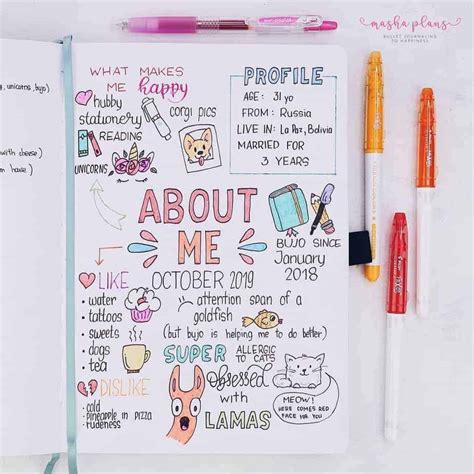 masha plans
BULLET JOURNALING
TO HAPPINESS
, unicorns, bujo)
with cheese)
n home)
WHAT MAKES
ME happy
hubby
stationery
READING
UNICORNS
corgi pics
PROFILE
AGE: 31 yo
FROM: Russia
LIVE IN: La Paz, Bolivia
MARRIED FOR
3 YEARS
ABOUT
ME
OCTOBER 2019
BUJO SINCE
January
2018
LIKE
• water
• tattoos
• sweets
• dogs
• tea
attention span of a
goldfish
(but bujo is helping me to do better)
SUPER ALLERGIC
TO CATS
DISLIKE
• cold
• pineapple in pizza
• rudeness
Obsessed
with
LAMAS
MEOW!
HERE COMES RED
FACE FOR YOU